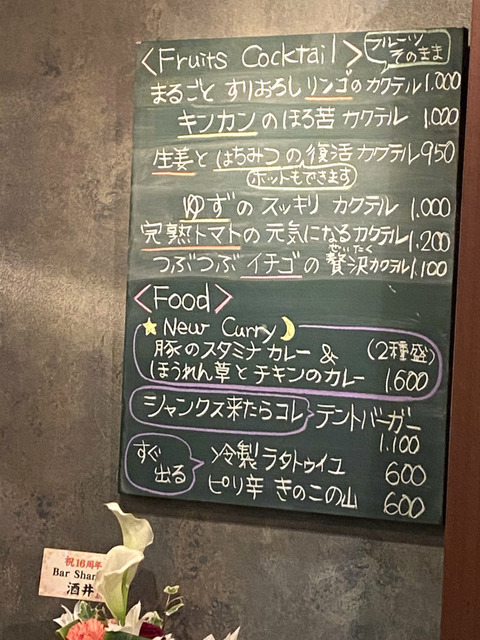 <Fruits Cocktail>
フルーツ
そのまま
まるごと すりおろし リンゴの カクテル 1.000
キンカン の ほろ苦 カクテル 1.000
生姜と はちみつの 復活 カクテル 950
ホットもできます
ゆずの スッキリ カクテル 1.000
完熟トマトの 元気になるカクテル 1.200
ぜいたく
つぶつぶ イチゴの 贅沢カクテル 1.100
<Food>
New Curry
豚のスタミナカレー & (2種盛)
ほうれん草とチキンのカレー 1.600
シャンクス来たらコレ テントバーガー
1.100
すぐ
出る
冷製 ラタトゥイユ 600
ピリ辛 きのこの山 600
祝16周年
Bar Shan
酒井